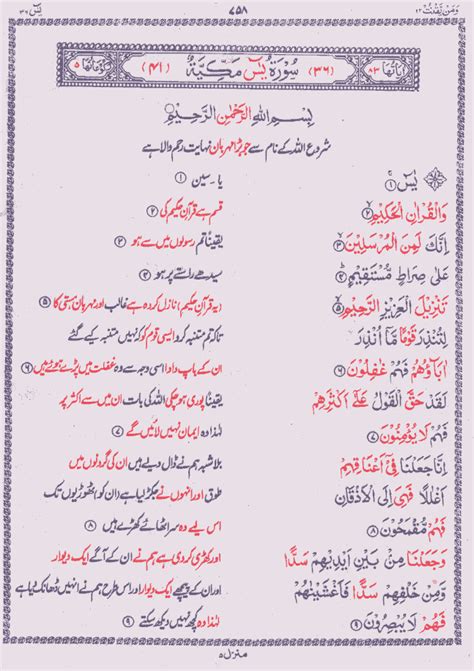 وَمَنْ يَّقْنُتْ ٢٢ ٧٥٨ يٰسٓ ٣٦
اٰيَاتُهَا ٨٣ (٣٦) سُوْرَةُ يٰسٓ مَكِّيَّةٌ (٤١) رُكُوْعَاتُهَا ٥
بِسْمِ اللّٰهِ الرَّحْمٰنِ الرَّحِيْمِ
شروع اللہ کے نام سے جو بڑا مہربان نہایت رحم والا ہے
يٰسٓ ۚ﴿۱﴾ یا۔سین ﴿۱﴾
وَالْقُرْاٰنِ الْحَكِيْمِ ۙ﴿۲﴾ قسم ہے قرآنِ حکیم کی ﴿۲﴾
اِنَّكَ لَمِنَ الْمُرْسَلِيْنَ ۙ﴿۳﴾ یقیناً تم رسولوں میں سے ہو ﴿۳﴾
عَلٰى صِرَاطٍ مُّسْتَقِيْمٍ ؕ﴿۴﴾ سیدھے راستے پر ہو ﴿۴﴾
تَنْزِيْلَ الْعَزِيْزِ الرَّحِيْمِ ۙ﴿۵﴾ (یہ قرآنِ حکیم) نازل کردہ ہے غالب اور مہربان ہستی کا ﴿۵﴾
لِتُنْذِرَ قَوْمًا مَّاۤ اُنْذِرَ تاکہ تم متنبہ کرو ایسی قوم کو کہ نہیں متنبہ کیے گئے
اٰبَآؤُهُمْ فَهُمْ غٰفِلُوْنَ ﴿۶﴾ ان کے باپ دادا اسی وجہ سے وہ غفلت میں پڑے ہوئے ہیں ﴿۶﴾
لَقَدْ حَقَّ الْقَوْلُ عَلٰۤى اَكْثَرِهِمْ یقیناً پوری ہو چکی اللہ کی بات ان میں سے اکثر پر
فَهُمْ لَا يُؤْمِنُوْنَ ﴿۷﴾ لہٰذا وہ ایمان نہیں لائیں گے ﴿۷﴾
اِنَّا جَعَلْنَا فِيْۤ اَعْنَاقِهِمْ بلاشبہ ہم نے ڈال دیے ہیں ان کی گردنوں میں
اَغْلٰلًا فَهِيَ اِلَى الْاَذْقَانِ طوق اور انہوں نے جکڑ لیا ہے ان کو ٹھوڑیوں تک
فَهُمْ مُّقْمَحُوْنَ ﴿۸﴾ اس لیے وہ سر اٹھائے کھڑے ہیں ﴿۸﴾
وَجَعَلْنَا مِنْۢ بَيْنِ اَيْدِيْهِمْ سَدًّا اور کھڑی کر دی ہے ہم نے ان کے آگے ایک دیوار
وَّمِنْ خَلْفِهِمْ سَدًّا فَاَغْشَيْنٰهُمْ اور ان کے پیچھے ایک دیوار اور اس طرح ہم نے انہیں ڈھانک دیا ہے
فَهُمْ لَا يُبْصِرُوْنَ ﴿۹﴾ لہٰذا وہ کچھ نہیں دیکھ سکتے ﴿۹﴾
منزل ۵